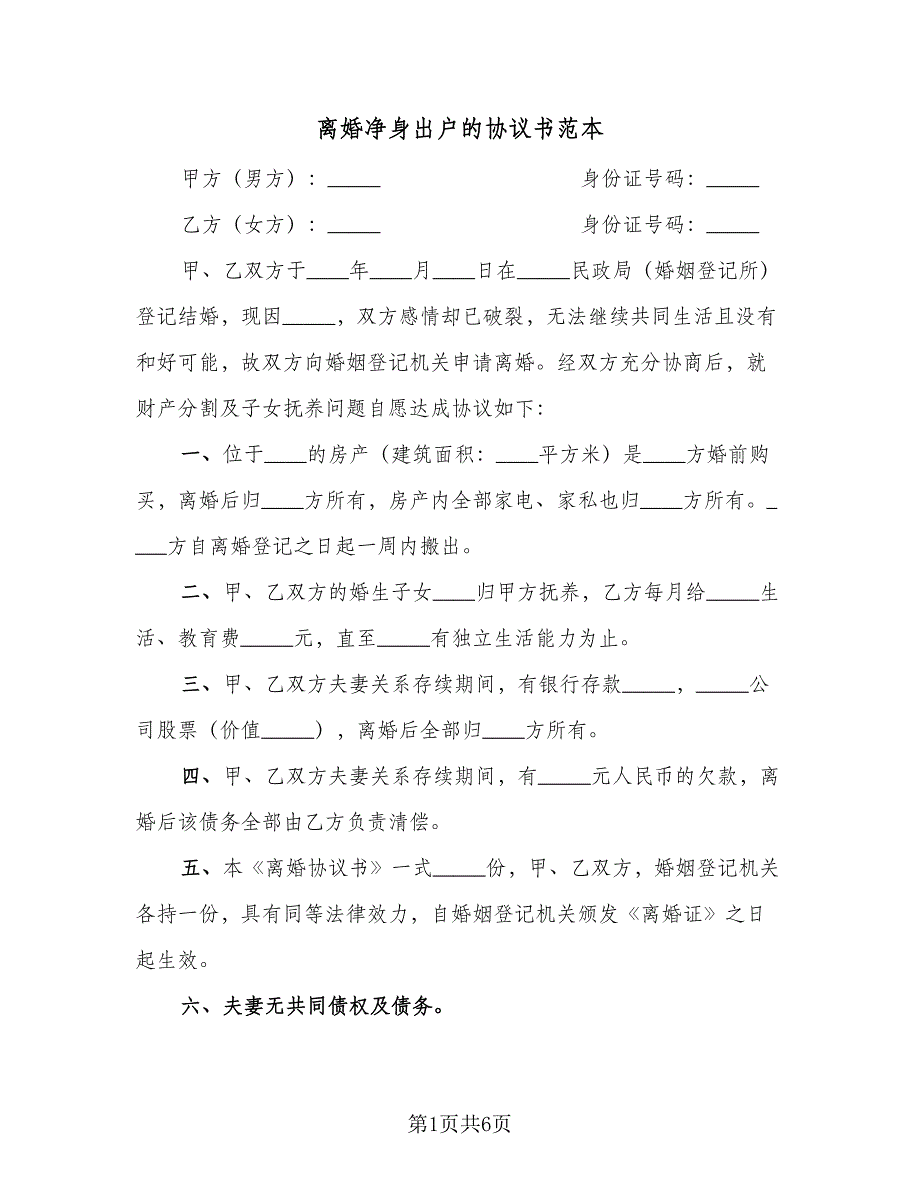 离婚净身出户的协议书范本
甲方（男方）：_____ 身份证号码：_____
乙方（女方）：_____ 身份证号码：_____
甲、乙双方于____年____月____日在_____民政局（婚姻登记所）
登记结婚，现因_____，双方感情却已破裂，无法继续共同生活且没有
和好可能，故双方向婚姻登记机关申请离婚。经双方充分协商后，就
财产分割及子女抚养问题自愿达成协议如下：
一、位于____的房产（建筑面积：____平方米）是____方婚前购
买，离婚后归____方所有，房产内全部家电、家私也归____方所有。_
___方自离婚登记之日起一周内搬出。
二、甲、乙双方的婚生子女____归甲方抚养，乙方每月给_____生
活、教育费_____元，直至_____有独立生活能力为止。
三、甲、乙双方夫妻关系存续期间，有银行存款_____，_____公
司股票（价值_____），离婚后全部归____方所有。
四、甲、乙双方夫妻关系存续期间，有_____元人民币的欠款，离
婚后该债务全部由乙方负责清偿。
五、本《离婚协议书》一式_____份，甲、乙双方，婚姻登记机关
各持一份，具有同等法律效力，自婚姻登记机关颁发《离婚证》之日
起生效。
六、夫妻无共同债权及债务。
第1页共6页